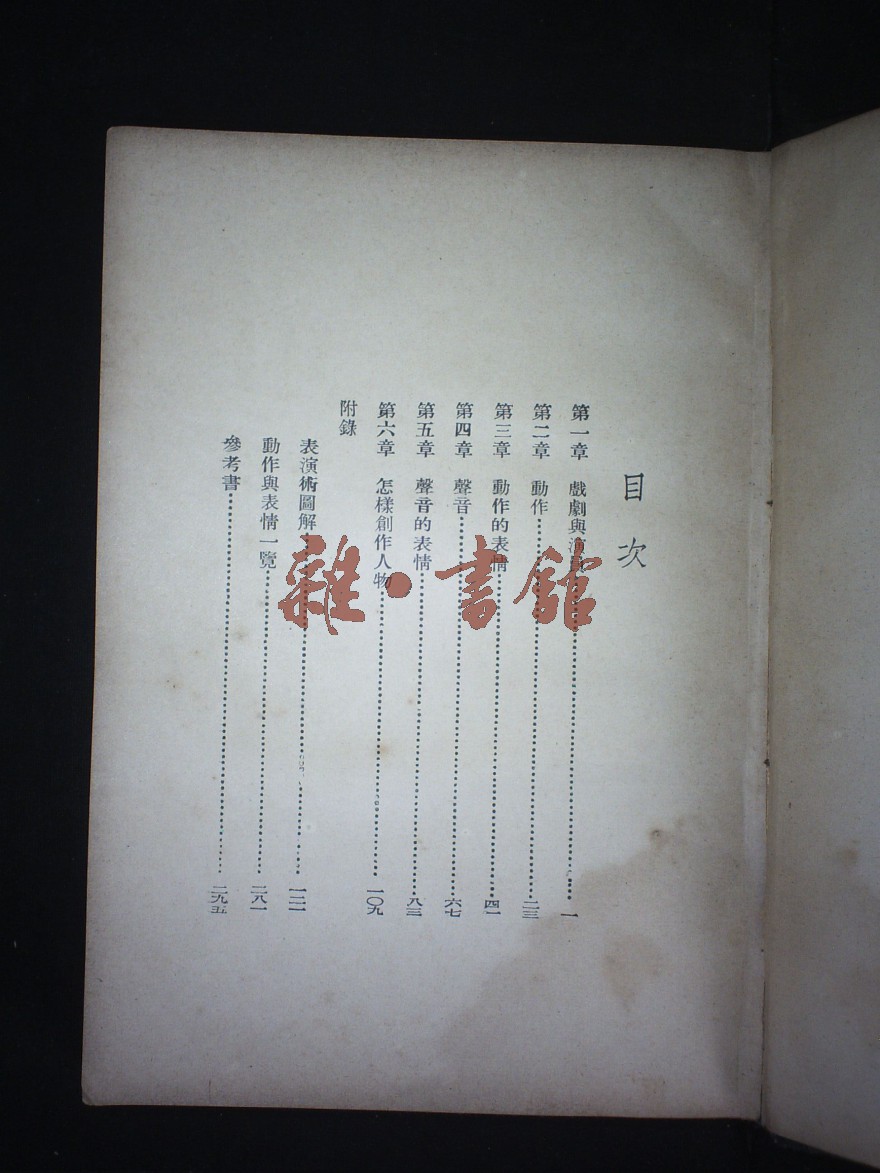 目次
第一章　戲劇與演……一
第二章　動作……二三
第三章　動作的表情……四一
第四章　聲音……六七
第五章　聲音的表情……八三
第六章　怎樣創作人物……一〇九
附錄
表演術圖解……一二一
動作與表情一覽……二八一
參考書……二九五
雜·書館